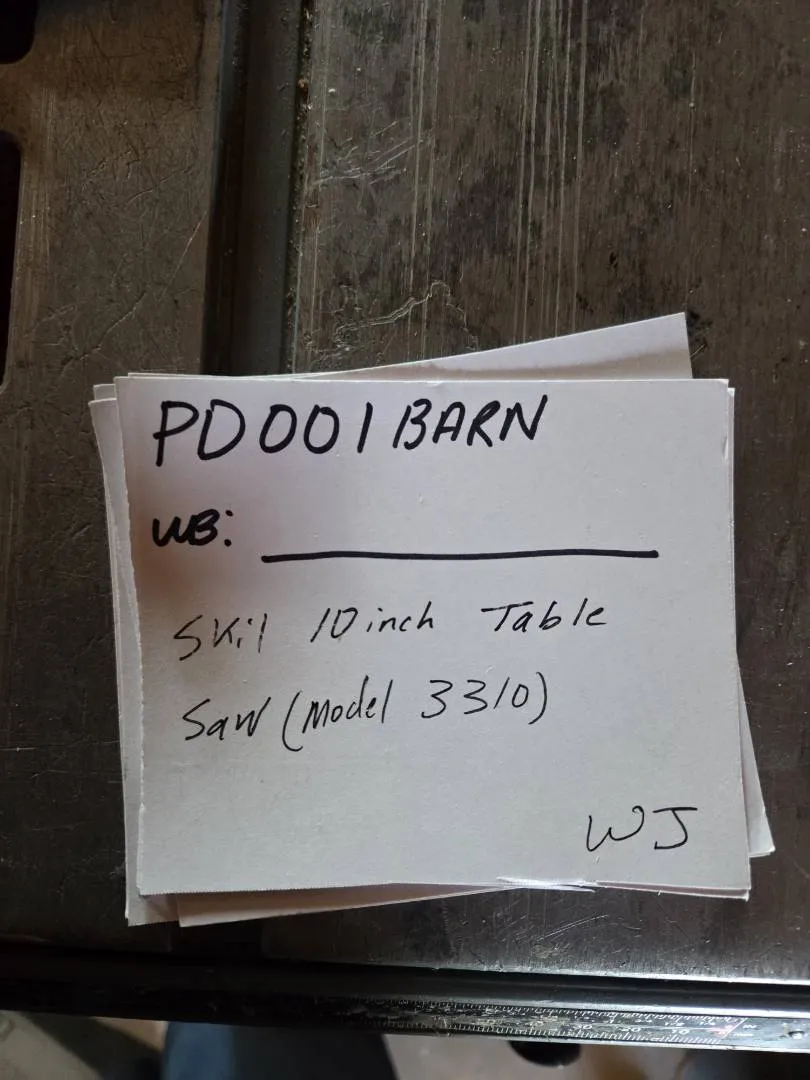 PD001BARN
WB:
Skil 10 inch Table
Saw (Model 3310)
WJ